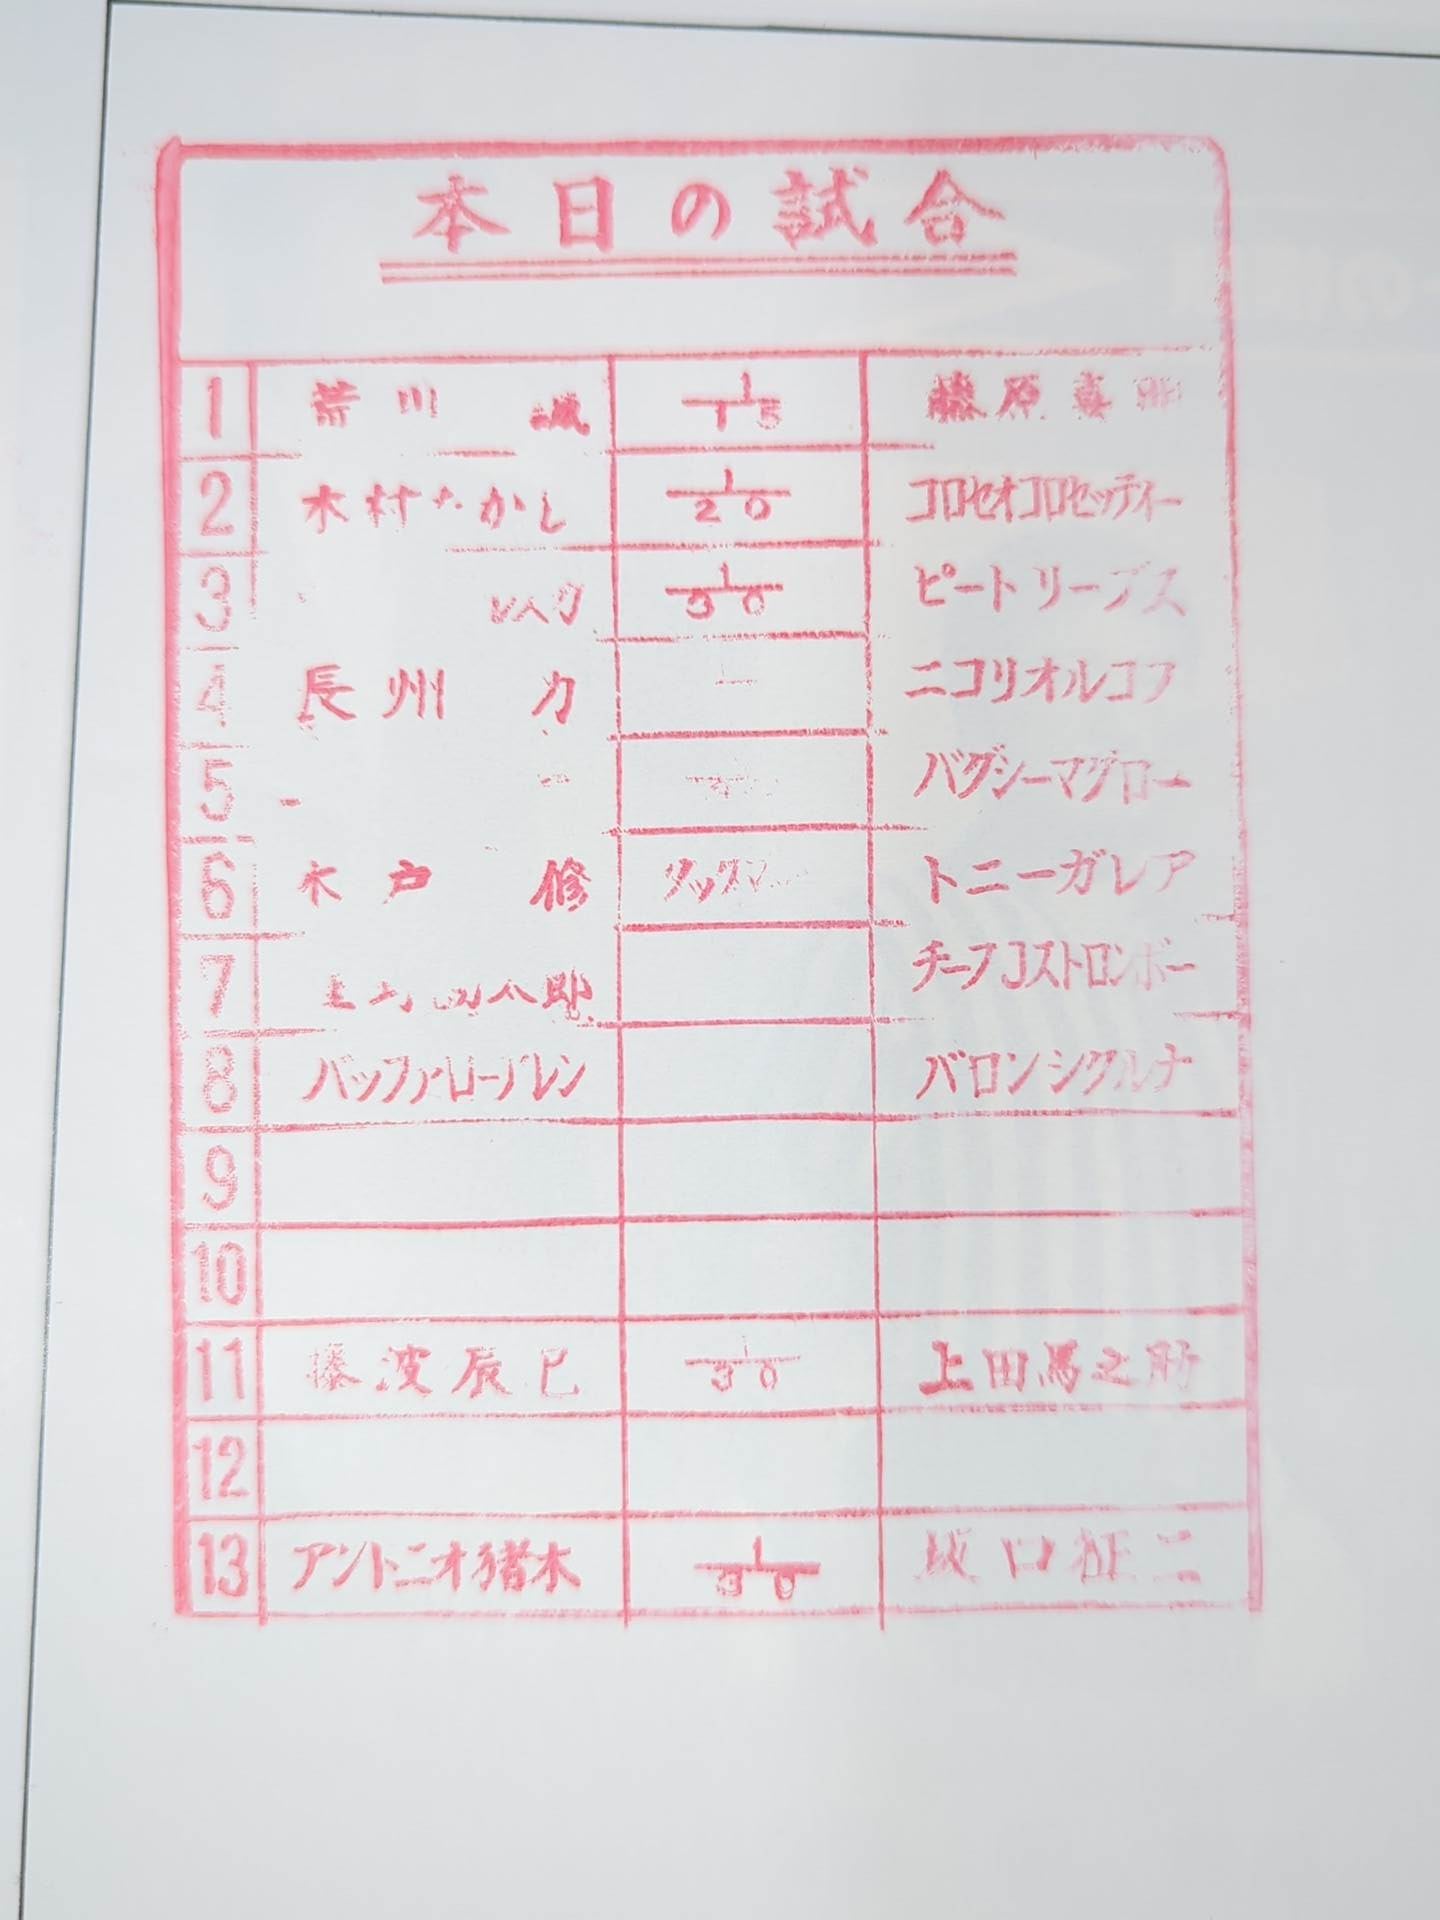 本日の試合
1 荒川 誠 1/15 藤原喜明
2 木村たかし 1/20 コロセオコロセッティー
3 1/30 ピートリーブス
4 長州 力 ニコリオルコフ
5 バグシーマグロー
6 木戸 修 タッグマ トニーガレア
7 チーフJストロンボー
8 バッファローアレン バロンシクルナ
9
10
11 藤波辰巳 1/30 上田馬之助
12
13 アントニオ猪木 1/30 坂口征二